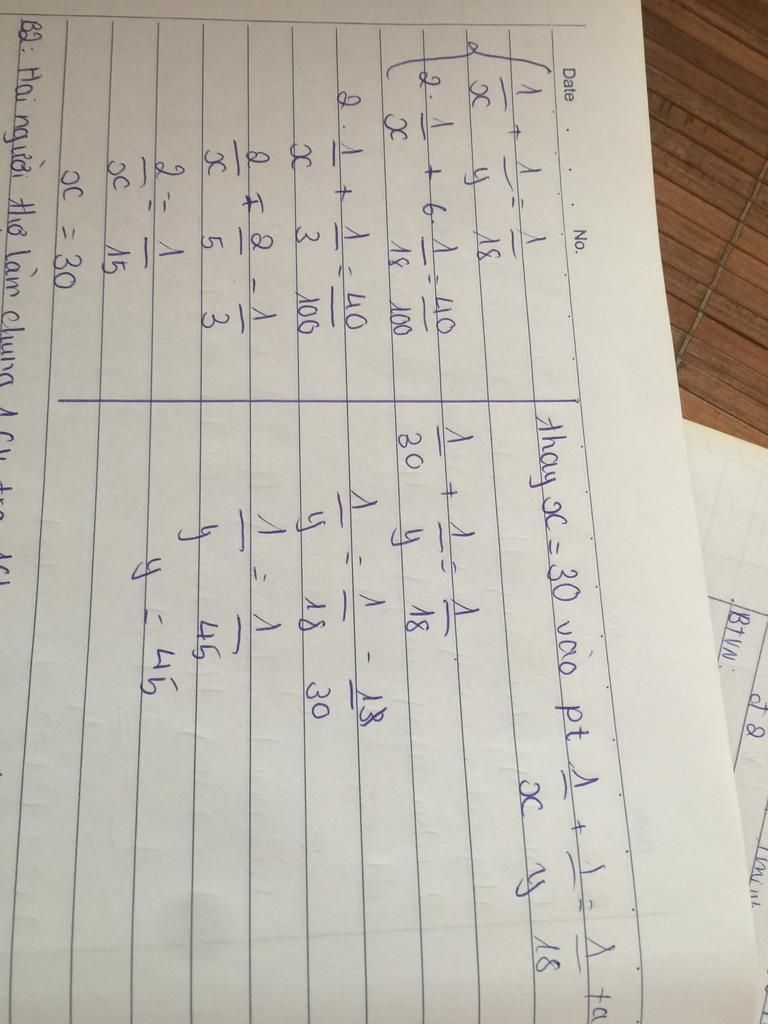 Date No.
{ 1/x + 1/y = 1/18
2 . 1/x + 6 . 1/18 = 40/100
2 . 1/x + 1/3 = 40/100
2/x = 2/5 - 1/3
2/x = 1/15
x = 30
thay x = 30 vào pt 1/x + 1/y = 1/18 ta
1/30 + 1/y = 1/18
1/y = 1/18 - 1/30
1/y = 1/45
y = 45
B2: Hai người thợ làm chung 1
BTVN: